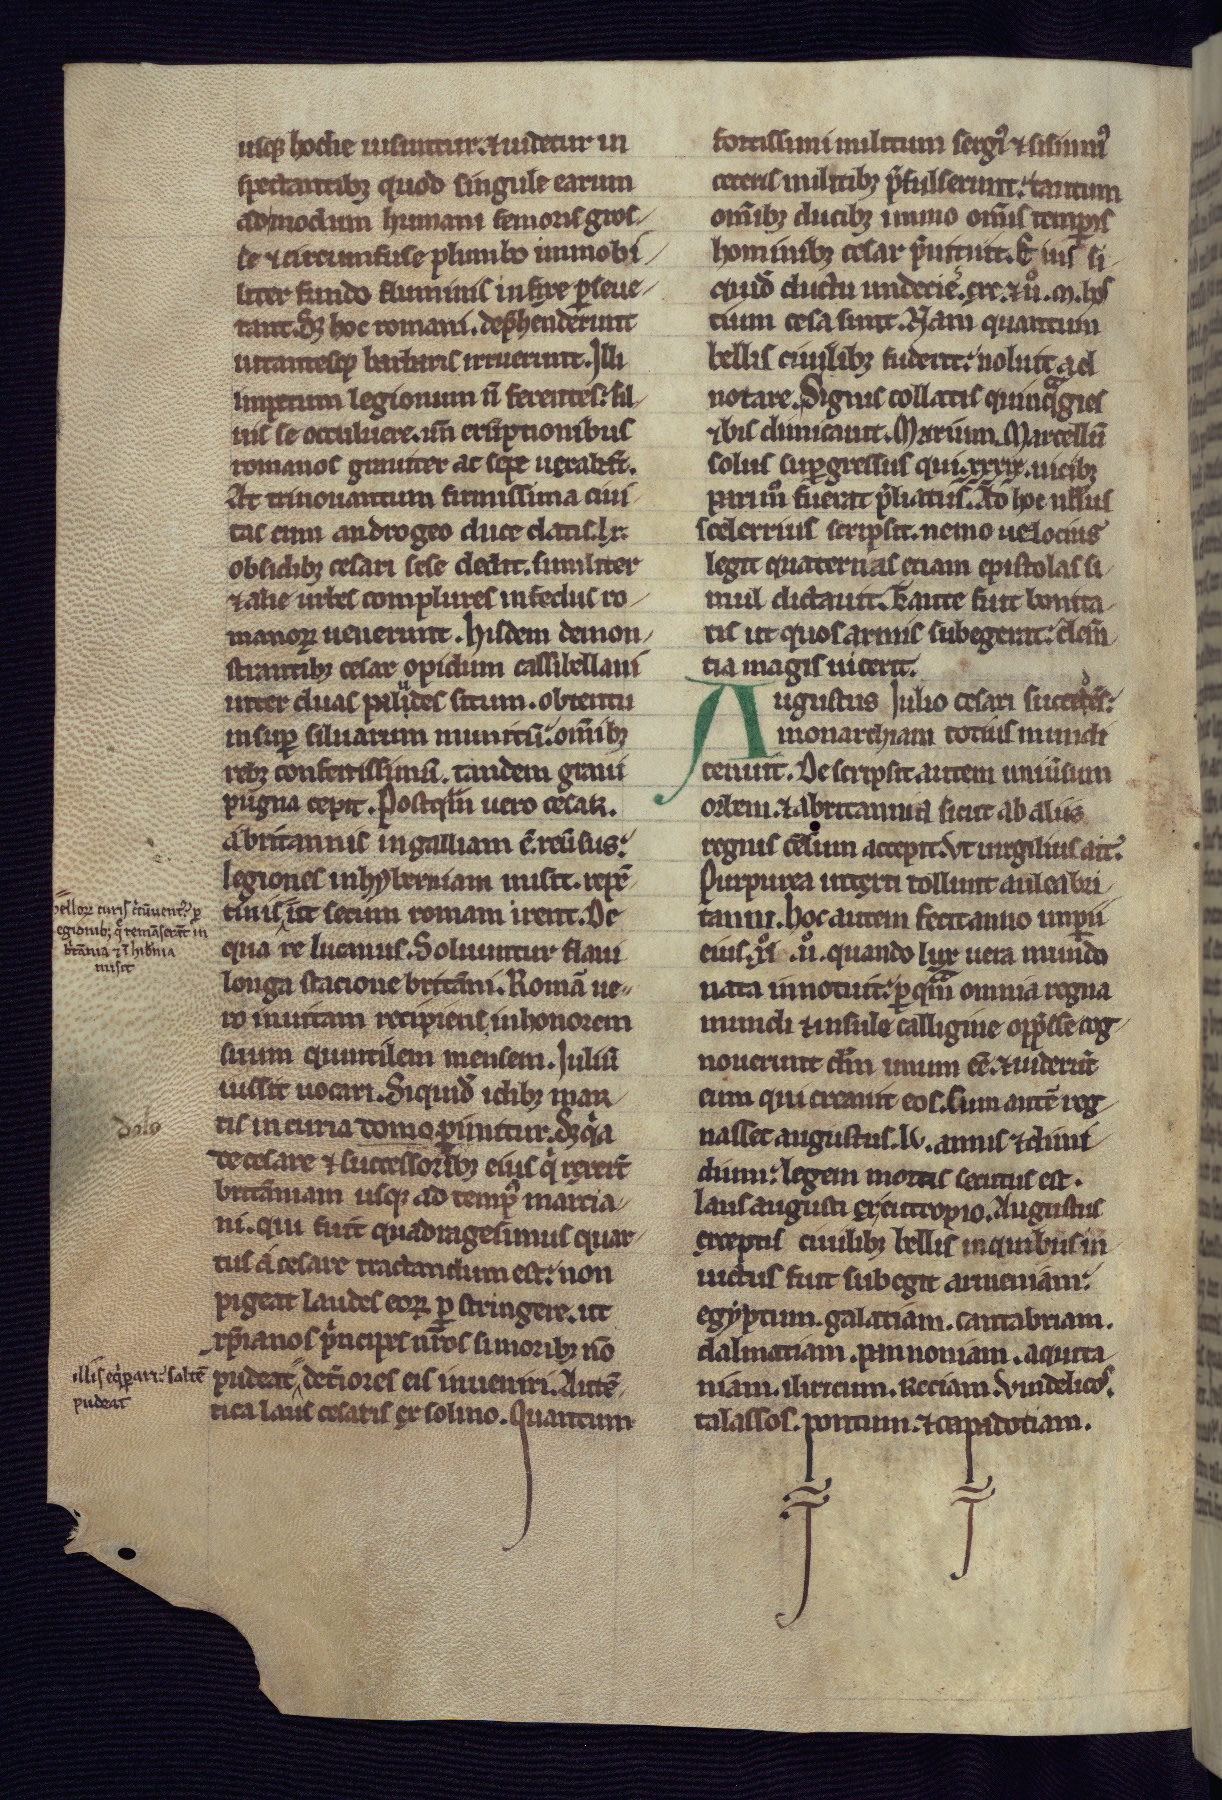 usq; hodie uisuntur. & uidetur in
spectantib; quod singule earum
ad modum humani femoris gros-
se & circumfuse plumbo immobi-
liter fundo fluminis infixe pseue-
rant. Qd hoc romani. dephenderunt
uitantesq; barbaris irruerunt. Illi
impetum legionum n ferentes: sil-
uis se occuluere. un eruptionibus
romanos grauiter ac sepe
At trinouantum firmissima ciui-
tas cum androgeo duce datis. lx.
obsidib; cesari sese dedit. similiter
& alie urbes complures in fedus ro-
manoꝝ uenerunt. Hisdem demon-
strantib; cesar opidum cassibellaui
inter duas paludes situm. obtentu
insup siluarum munitū: omib;
reb; confertissimū. tandem graui
pugna cepit. Postqm uero cesar.
a britannis in galliam ē reūsus:
legiones in hyberniam misit.
ut secum romam irent. De
qua re lucanus. Soluuntur flaui
longa stacione britāni. Romā ue-
ro inuitam recipiens in honorem
suum quintilem mensem. Iuliū
iussit uocari. Siquid idib; mar
tis in curia tomo pimitur. Sz qa
de cesare & successorib; eius q rexert
britāniam usq; ad temp marcia-
ni. qui fuit quadragesimus quar-
tus a cesare tractandum est: non
pigeat laudes eoꝝ pstringere. ut
xpianos pncipes nros si moribz nō
pudeat, detiores eis inueniri. Autē-
tica laus cesaris ex solino. Quantum
dolo
illis eqpari: saltē
pudeat
fortissimi militum sergi & sisinni
ceteris militib; pfulserunt: tantum
omib; ducib; immo omis tempis
hominib; cesar pnituit. Et ius si-
quid ductu undecie. cxc. & ii. m. hos
tium cesa sunt. Nam quantum
bellis ciuilib; fuderit: noluit ad
notare. Signis collatis quinqgies
& bis dimicauit. Marcum. Marcellū
solus supgressus qui. xxxix. uicib;
fuerat pliatus. Ad hoc nllus
scelerrius scripsit. nemo uelocius
legit quaternas etiam epistolas si-
mul dictauit. Tante fuit bonita-
tis ut quos armis subegerat: clem
tia magis uicerit.
Augustus Iulio cesari
monarchiam totius mundi
tenuit. Descripsit autem uniusum
orbem. & a britannia sicut ab aliis
regnis censum accepit. Vt uirgilius ait:
Purpurea intexti tollunt aulea bri-
tanni. Hoc autem fecit anno impii
eius. xl. ii. quando lux uera mundo
nata innotuit: p qm omnia regna
mundi & insule calligine oppresse cog-
nouerunt dm unum ee. & uiderūt
eum qui creauit eos. Cum autē reg-
nasset augustus. lv. annis & dimi-
dium: legem mortis secutus est.
laus augusti ex eutropio. Augustus
exceptis ciuilib; bellis in quibus in-
uictus fuit subegit armeniam:
egyptum. galatiam. cantabriam.
dalmatiam. pannoniam. aquita-
niam. iliricum. Reciam. Vindelicos.
talassos. pontum. & capadotiam.